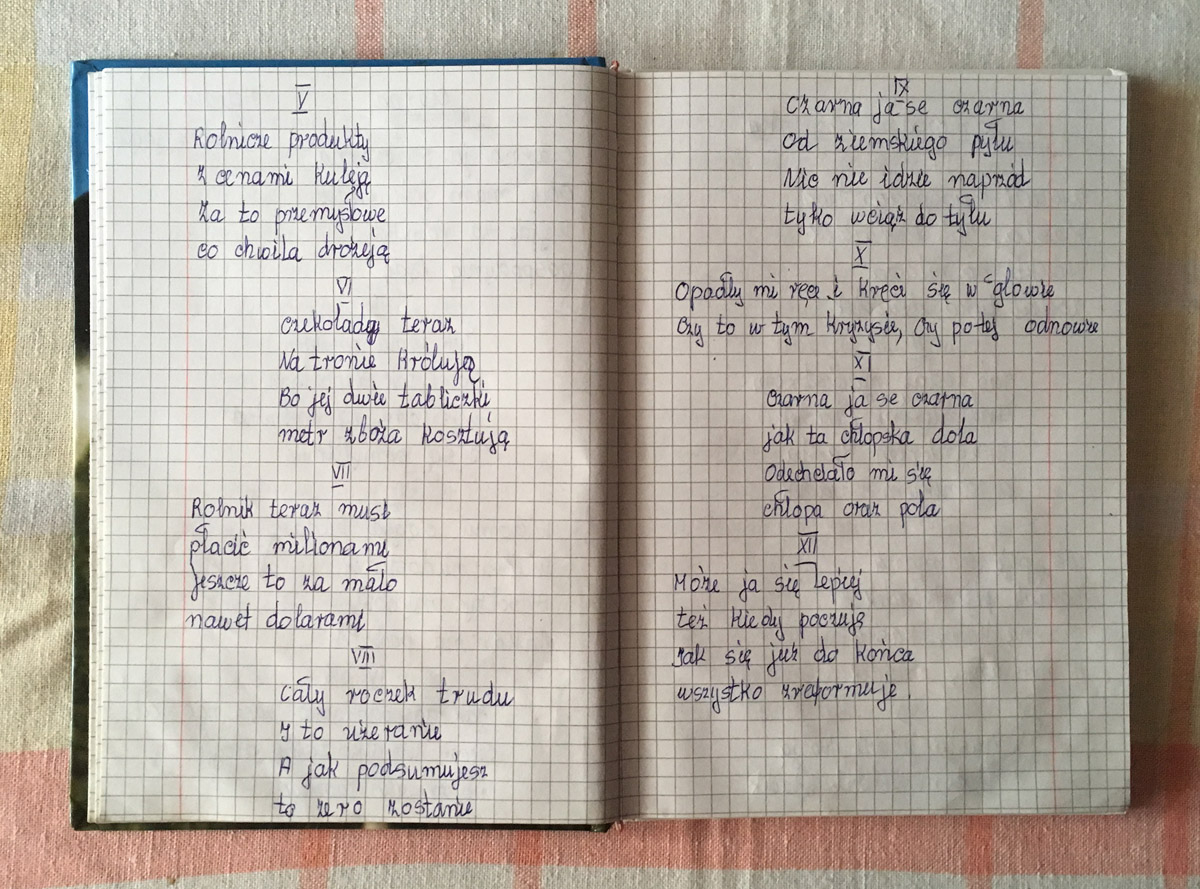 V
Rolnicze produkty
z cenami kuleją
Za to przemysłowe
co chwila drożeją
VI
czekolady teraz
Na tronie królują
Bo jej dwie tabliczki
metr zboża kosztują
VII
Rolnik teraz musi
płacić milionami
jeszcze to za mało
nawet dolarami
VIII
Cały roczek trudu
I to użeranie
A jak podsumujesz
to zero zostanie
IX
Czarna ja se czarna
Od ziemskiego pyłu
Nic nie idzie naprzód
tylko wciąż do tyłu
X
Opadły mi ręce i kręci się w głowze
Czy to w tym kryzysie, czy po tej odnowze
XI
Czarna ja se czarna
jak ta chłopska dola
Odechciało mi się
chłopa oraz pola
XII
Może ja się lepiej
też kiedy poczuję
Jak się już do końca
wszystko zreformuje.